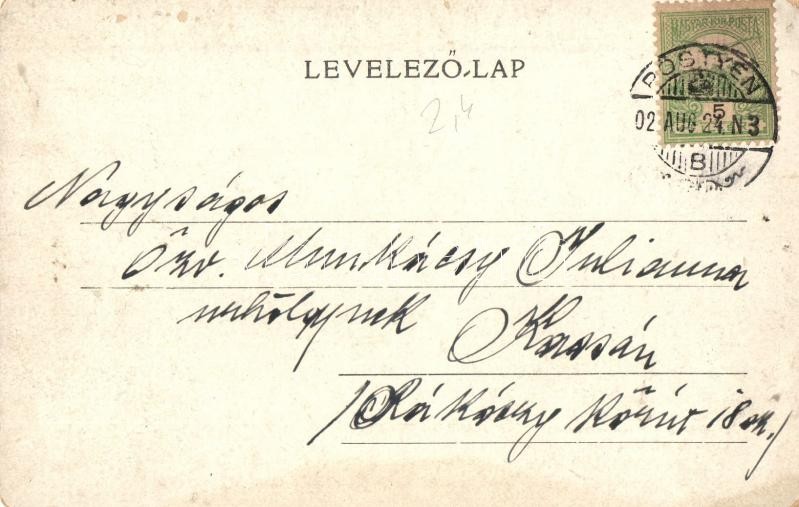 MAGYAR KIR. POSTA
LEVELEZŐ-LAP
PÖSTYÉN
5
02 AUG 24 N 3
B
2,4
Nagyságos
Özv. Munkácsy Julianna
úrhölgynek
Kassán
/Rákóczy körút 18 sz./